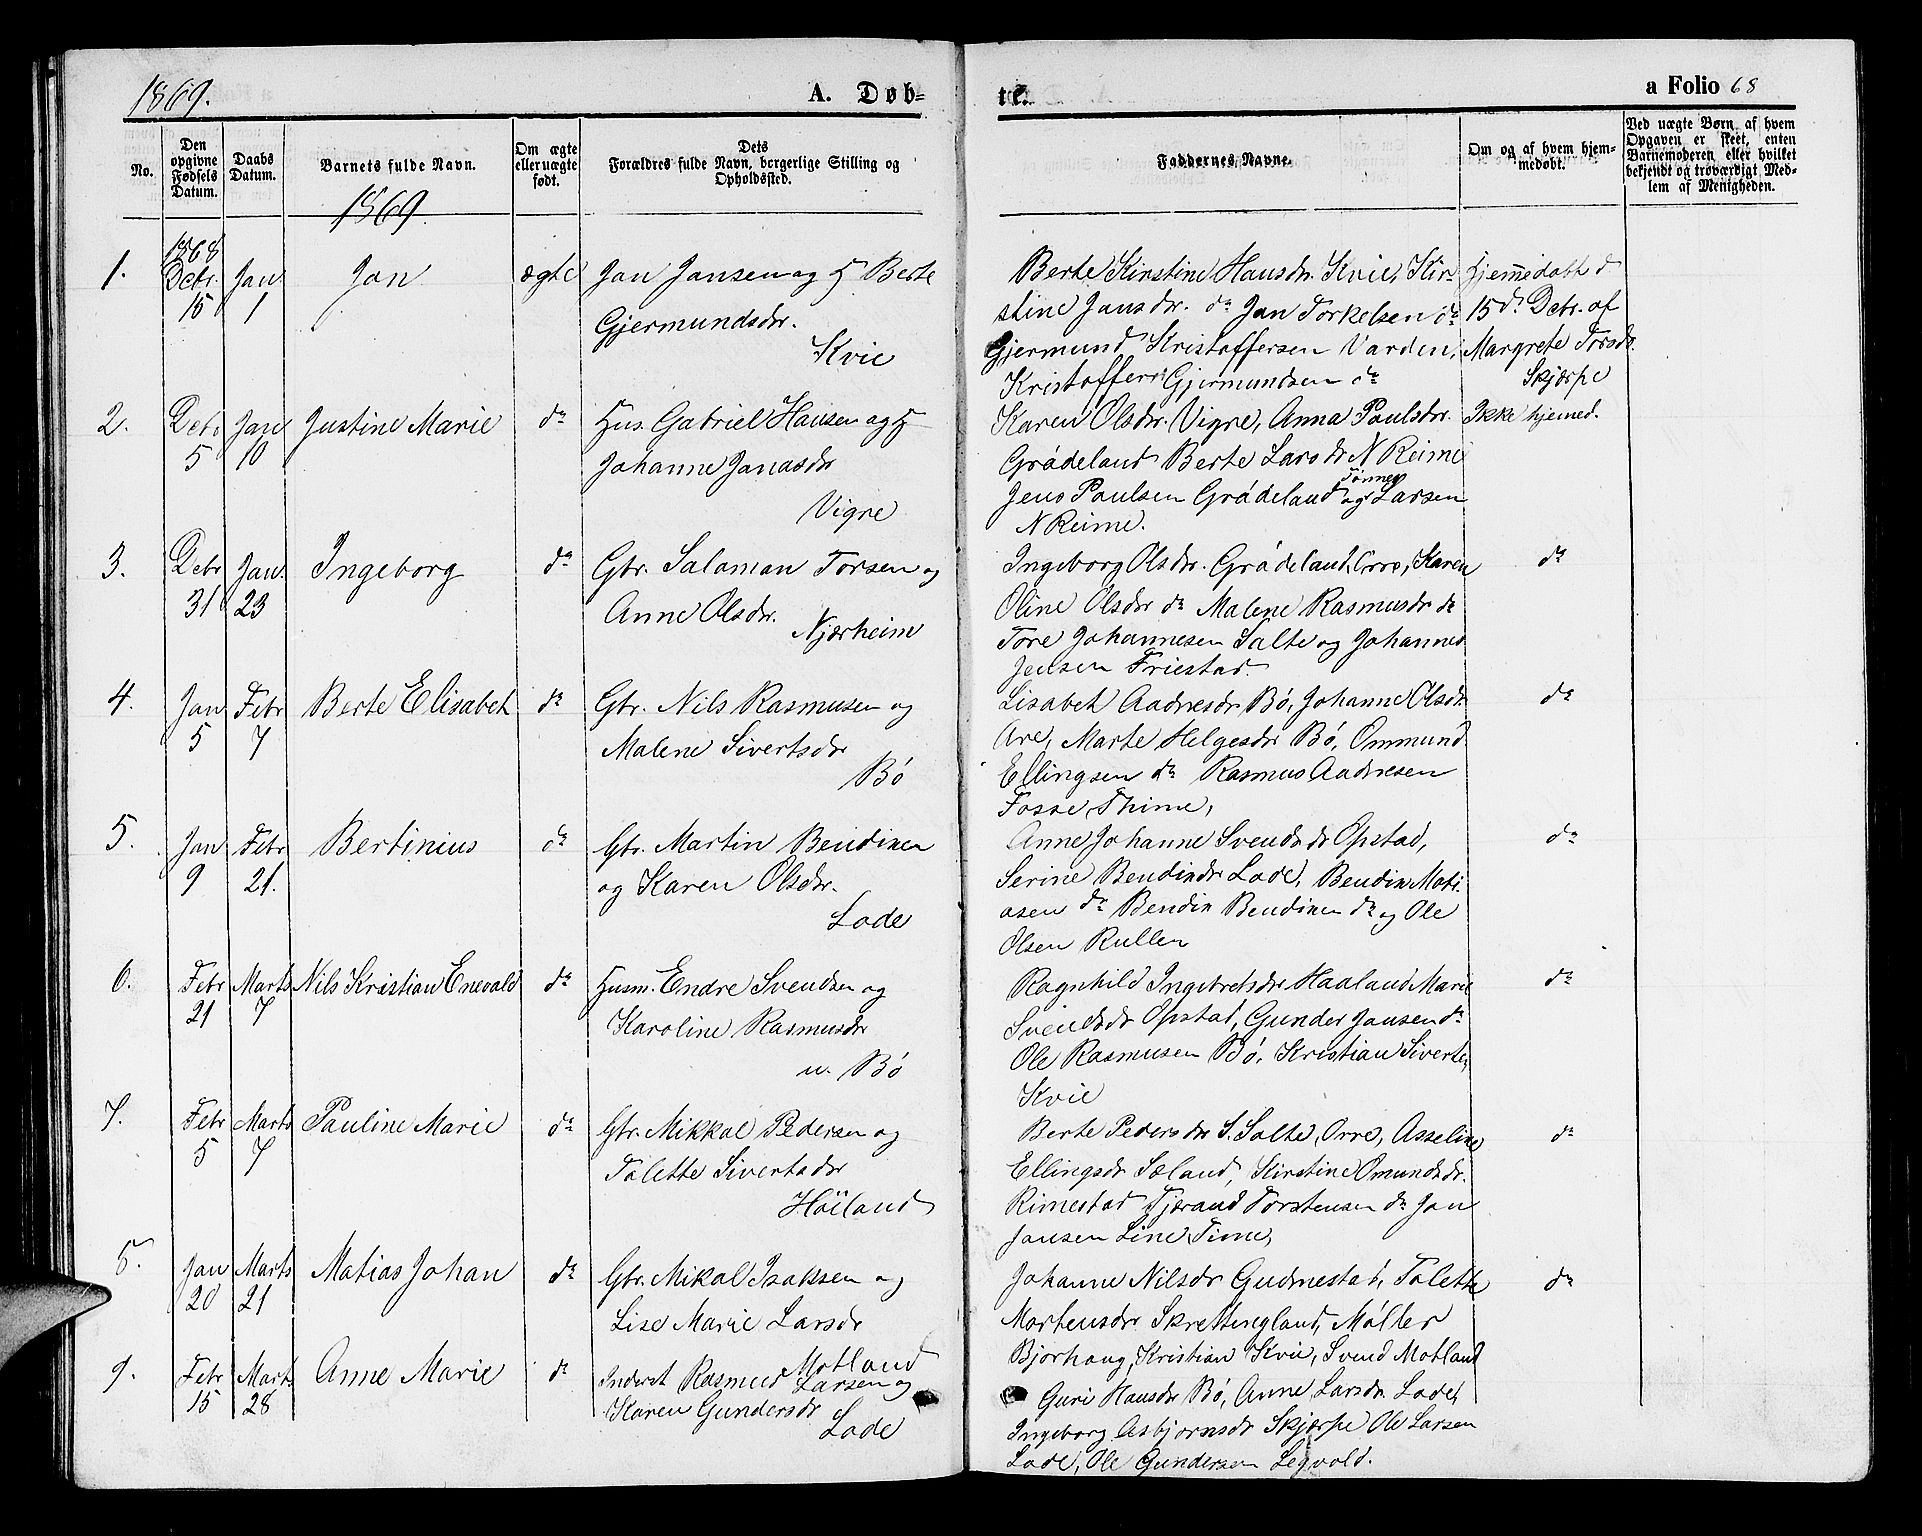 1869.
A. Døb-
te.
a Folio 68
No.
Den opgivne Fødsels Datum.
Daabs Datum.
Barnets fulde Navn.
Om ægte eller uægte født.
Dets Forældres fulde Navn, borgerlige Stilling og Opholdssted.
Faddernes Navne.
Om og af hvem hjemmedøbt.
Ved uægte Børn, af hvem Opgaven er skeet, enten Barnemoderen eller hvilket bekjendt og troværdigt Medlem af Menigheden.
1869.
1. 1868 Debr. 15 Jan 1 Jan ægte Jan Jansen og H Berte
Gjermundsdr.
Kvie
Berte Kirstine Hansdr. Kvie, Kir-
stine Jansdr. do Jan Torkelsen do
Gjermund Kristoffersen Varden,
Kristoffer Gjermundsen do
Hjemmedøbt d
15d. Debr. af
Margrete Torsdr.
Skjærpe
2. Debr 5 Jan 10 Justine Marie do Hus. Gabriel Hansen og H
Johanne Jonasdr
Vigre
Karen Olsdr. Vigre, Anna Paulsdr.
Grådeland Berte Larsdr N Reime
Jens Paulsen Grådeland og Tønnes Larsen
N Reime.
Ikke hjemmed.
3. Debr 31 Jan. 23 Ingeborg do Gbr. Salaman Torsen og
Anne Olsdr.
Njærheim
Ingeborg Olsdr. Grådeland, Orre, Karen
Oline Olsdr do Malene Rasmusdr do
Tore Johannesen Salte og Johannes
Jensen Friestad.
do
4. Jan 5 Febr 7 Berte Elisabet do Gbr. Nils Rasmusen og
Malene Sivertsdr
Bø
Lisabet Aadnesdr Bø, Johanne Olsdr
Are, Marte Helgesdr Bø, Ommund
Ellingsen do Rasmus Aadnesen
Fosse Thime,
do
5. Jan 9 Febr 21. Bertinius do Gbr. Martin Bendixen
og Karen Olsdr.
Lode
Anne Johanne Svendsdr Opstad,
Serine Bendixdr Lode, Bendix Mati-
asen do Bendix Bendixen do og Ole
Olsen Rullen
do
6. Febr 21 Marts 7 Nils Kristian Enevald do Husm. Endre Svendsen og
Karoline Rasmusdr
u. Bø
Ragnhild Ingebretsdr Haaland Marie
Svendsdr Opstad, Gunder Jansen do
Ole Rasmusen Bø, Kristian Siverts,
Kvie
do
7. Febr 5 Marts 7 Pauline Marie do Gbr. Mikkal Pedersen og
Talette Sivertsdr
Höiland
Berte Pedersdr S. Salte, Orre, Asseline
Ellingsdr Sæland, Kirstine Omundsdr.
Rimestad Tjerand Torstensen do Jan
Jansen Line, Time,
do
8. Jan 20 Marts 21 Matias Johan do Gbr. Mikal Isaksen og
Lise Marie Larsdr
Motland
Johanne Nilsdr Gudmestad, Talette
Mortensdr Skrettingland, Møller
Bjorhaug, Kristian Kvie, Svend Motland
do
9. Febr 15 Marts 28 Anne Marie do Inderst Rasmus Larsen og
Karen Gundersdr
Lode
Guri Hansdr Bø, Anne Larsdr Lode,
Ingeborg Asbjørnsdr Skjærpe Ole Larsen
Lode, Ole Gundersen Legvold.